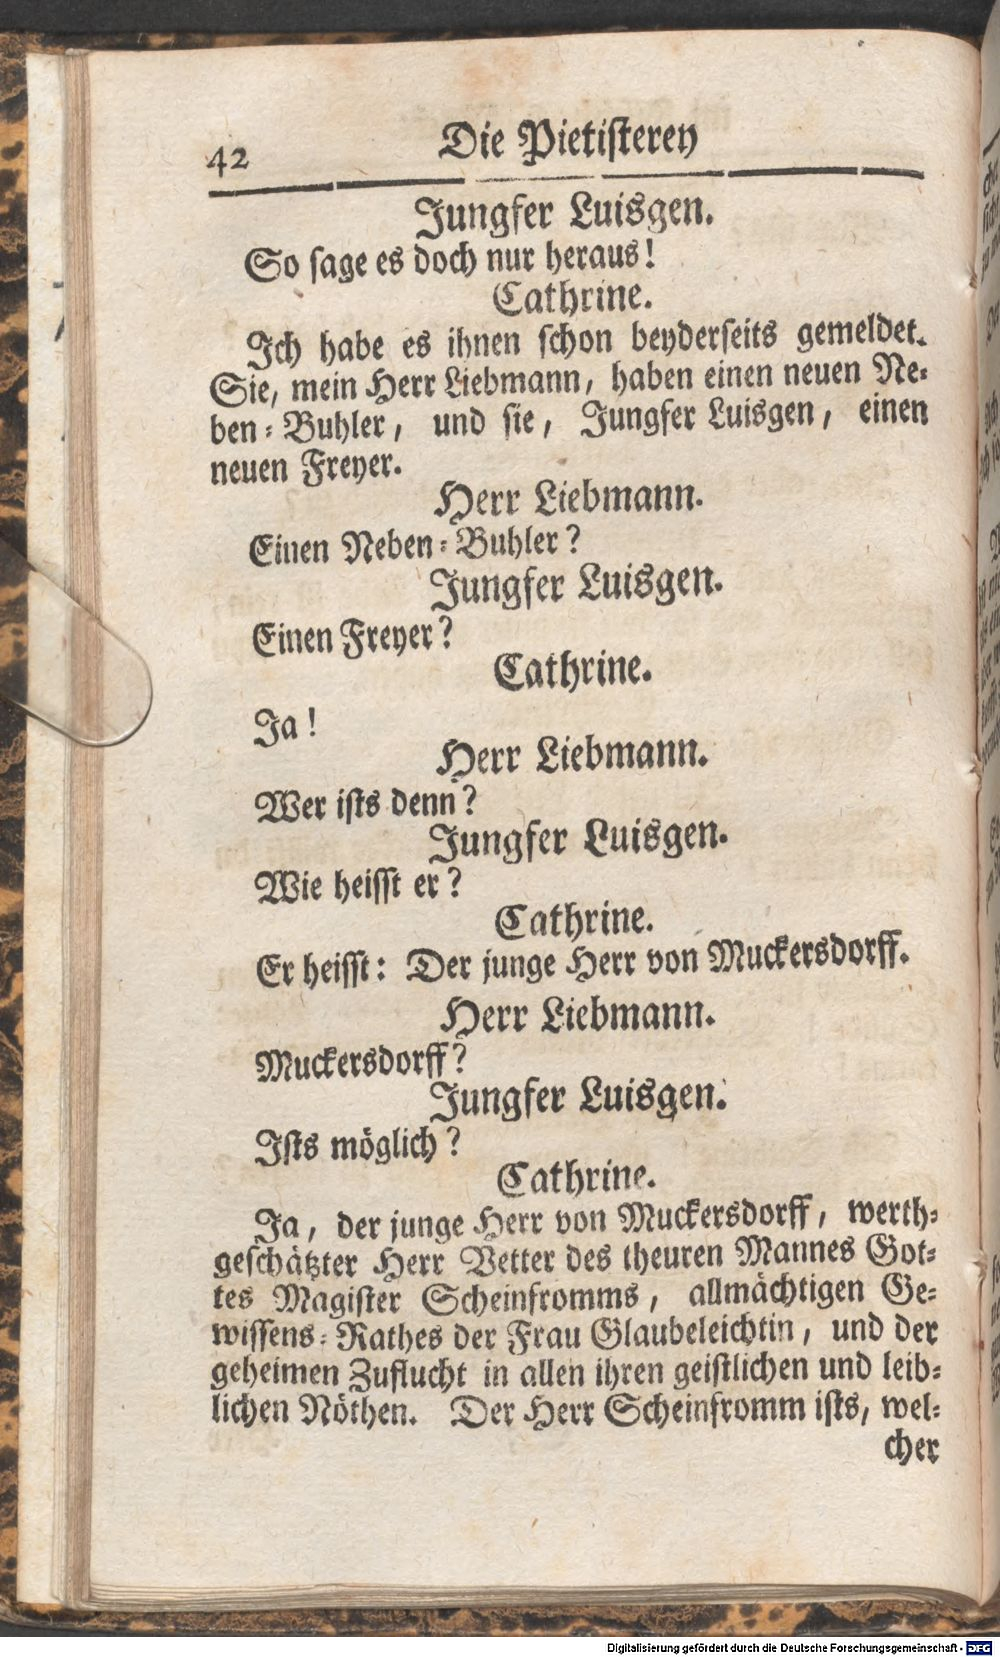 42
Die Pietisterey
Jungfer Luisgen.
So ſage es doch nur heraus!
Cathrine.
Ich habe es ihnen ſchon beyderſeits gemeldet.
Sie, mein Herr Liebmann, haben einen neuen Ne-
ben-Buhler, und ſie, Jungfer Luisgen, einen
neuen Freyer.
Herr Liebmann.
Einen Neben-Buhler?
Jungfer Luisgen.
Einen Freyer?
Cathrine.
Ja!
Herr Liebmann.
Wer iſts denn?
Jungfer Luisgen.
Wie heiſſt er?
Cathrine.
Er heiſſt: Der junge Herr von Muckersdorff.
Herr Liebmann.
Muckersdorff?
Jungfer Luisgen.
Iſts möglich?
Cathrine.
Ja, der junge Herr von Muckersdorff, werth-
geſchätzter Herr Vetter des theuren Mannes Got-
tes Magiſter Scheinfromms, allmächtigen Ge-
wiſſens-Rathes der Frau Glaubeleichtin, und der
geheimen Zuflucht in allen ihren geiſtlichen und leib-
lichen Nöthen. Der Herr Scheinfromm iſts, wel-
cher
Digitalisierung gefördert durch die Deutsche Forschungsgemeinschaft - DFG